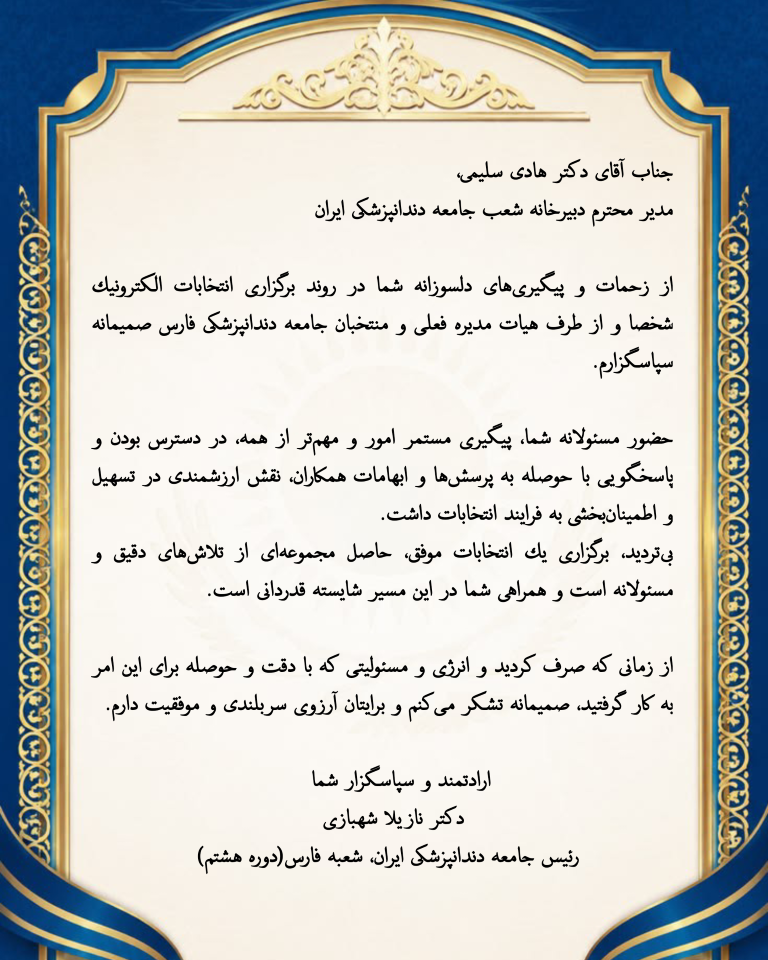 جناب آقای دکتر هادی سلیمی،
مدیر محترم دبیرخانه شعب جامعه دندانپزشکی ایران
از زحمات و پیگیری‌های دلسوزانه شما در روند برگزاری انتخابات الکترونیك
شخصا و از طرف هیات مدیره فعلی و منتخبان جامعه دندانپزشکی فارس صمیمانه
سپاسگزارم.
حضور مسئولانه شما، پیگیری مستمر امور و مهم‌تر از همه، در دسترس بودن و
پاسخگویی با حوصله به پرسش‌ها و ابهامات همکاران، نقش ارزشمندی در تسهیل
و اطمینان‌بخشی به فرایند انتخابات داشت.
بی‌تردید، برگزاری یك انتخابات موفق، حاصل مجموعه‌ای از تلاش‌های دقیق و
مسئولانه است و همراهی شما در این مسیر شایسته قدردانی است.
از زمانی که صرف کردید و انرژی و مسئولیتی که با دقت و حوصله برای این امر
به کار گرفتید، صمیمانه تشکر می‌کنم و برایتان آرزوی سربلندی و موفقیت دارم.
ارادتمند و سپاسگزار شما
دکتر نازیلا شهبازی
رئیس جامعه دندانپزشکی ایران، شعبه فارس(دوره هشتم)